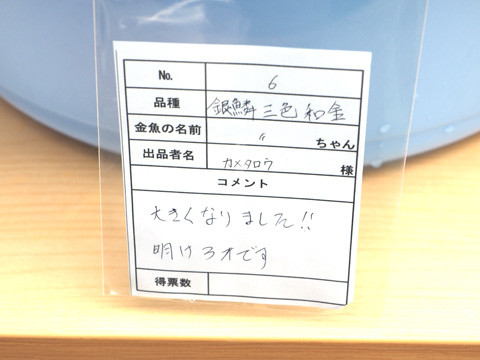 No. 6
品種 銀鱗三色和金
金魚の名前 〃 ちゃん
出品者名 カメタロウ 様
コメント
大きくなりました!!
明け3才です
得票数